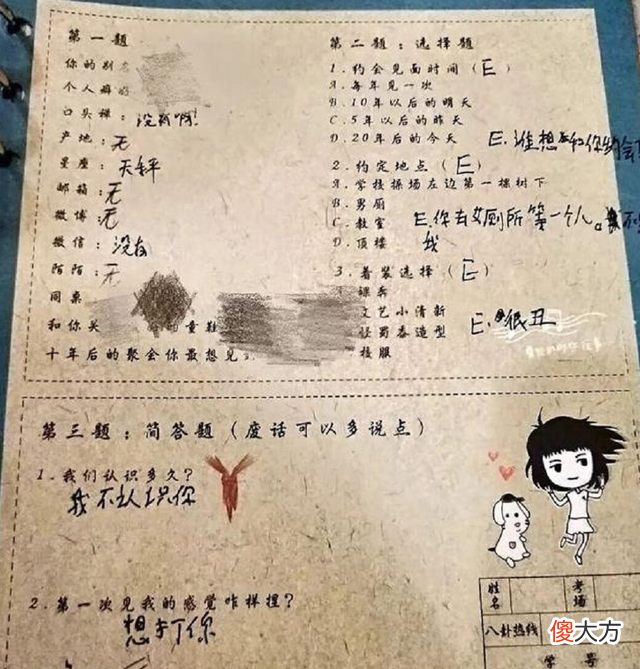 第一题
你的别名
个人癖好
口头禅：没有啊！
产地：无
星座：天秤
邮箱：无
微博：无
微信：没有
陌陌：无
同桌
和你关 的童鞋
十年后的聚会你最想见
第二题：选择题
1.约会见面时间（E）
A.每年见一次
B.10年以后的明天
C.5年以后的昨天
D.20年后的今天 E.谁想和你约会
2.约定地点（E）
A.学校操场左边第一棵树下
B.男厕
C.教室 E.你去女厕所等一个人。我不
D.顶楼 我
3.着装选择（E）
裸奔
文艺小清新
怪蜀黍造型 E.很丑
校服
第三题：简答题（废话可以多说点）
1.我们认识多久？
我不认识你
2.第一次见我的感觉咋样捏？
想打你
姓名 考场
八卦热线
学号
傻大方